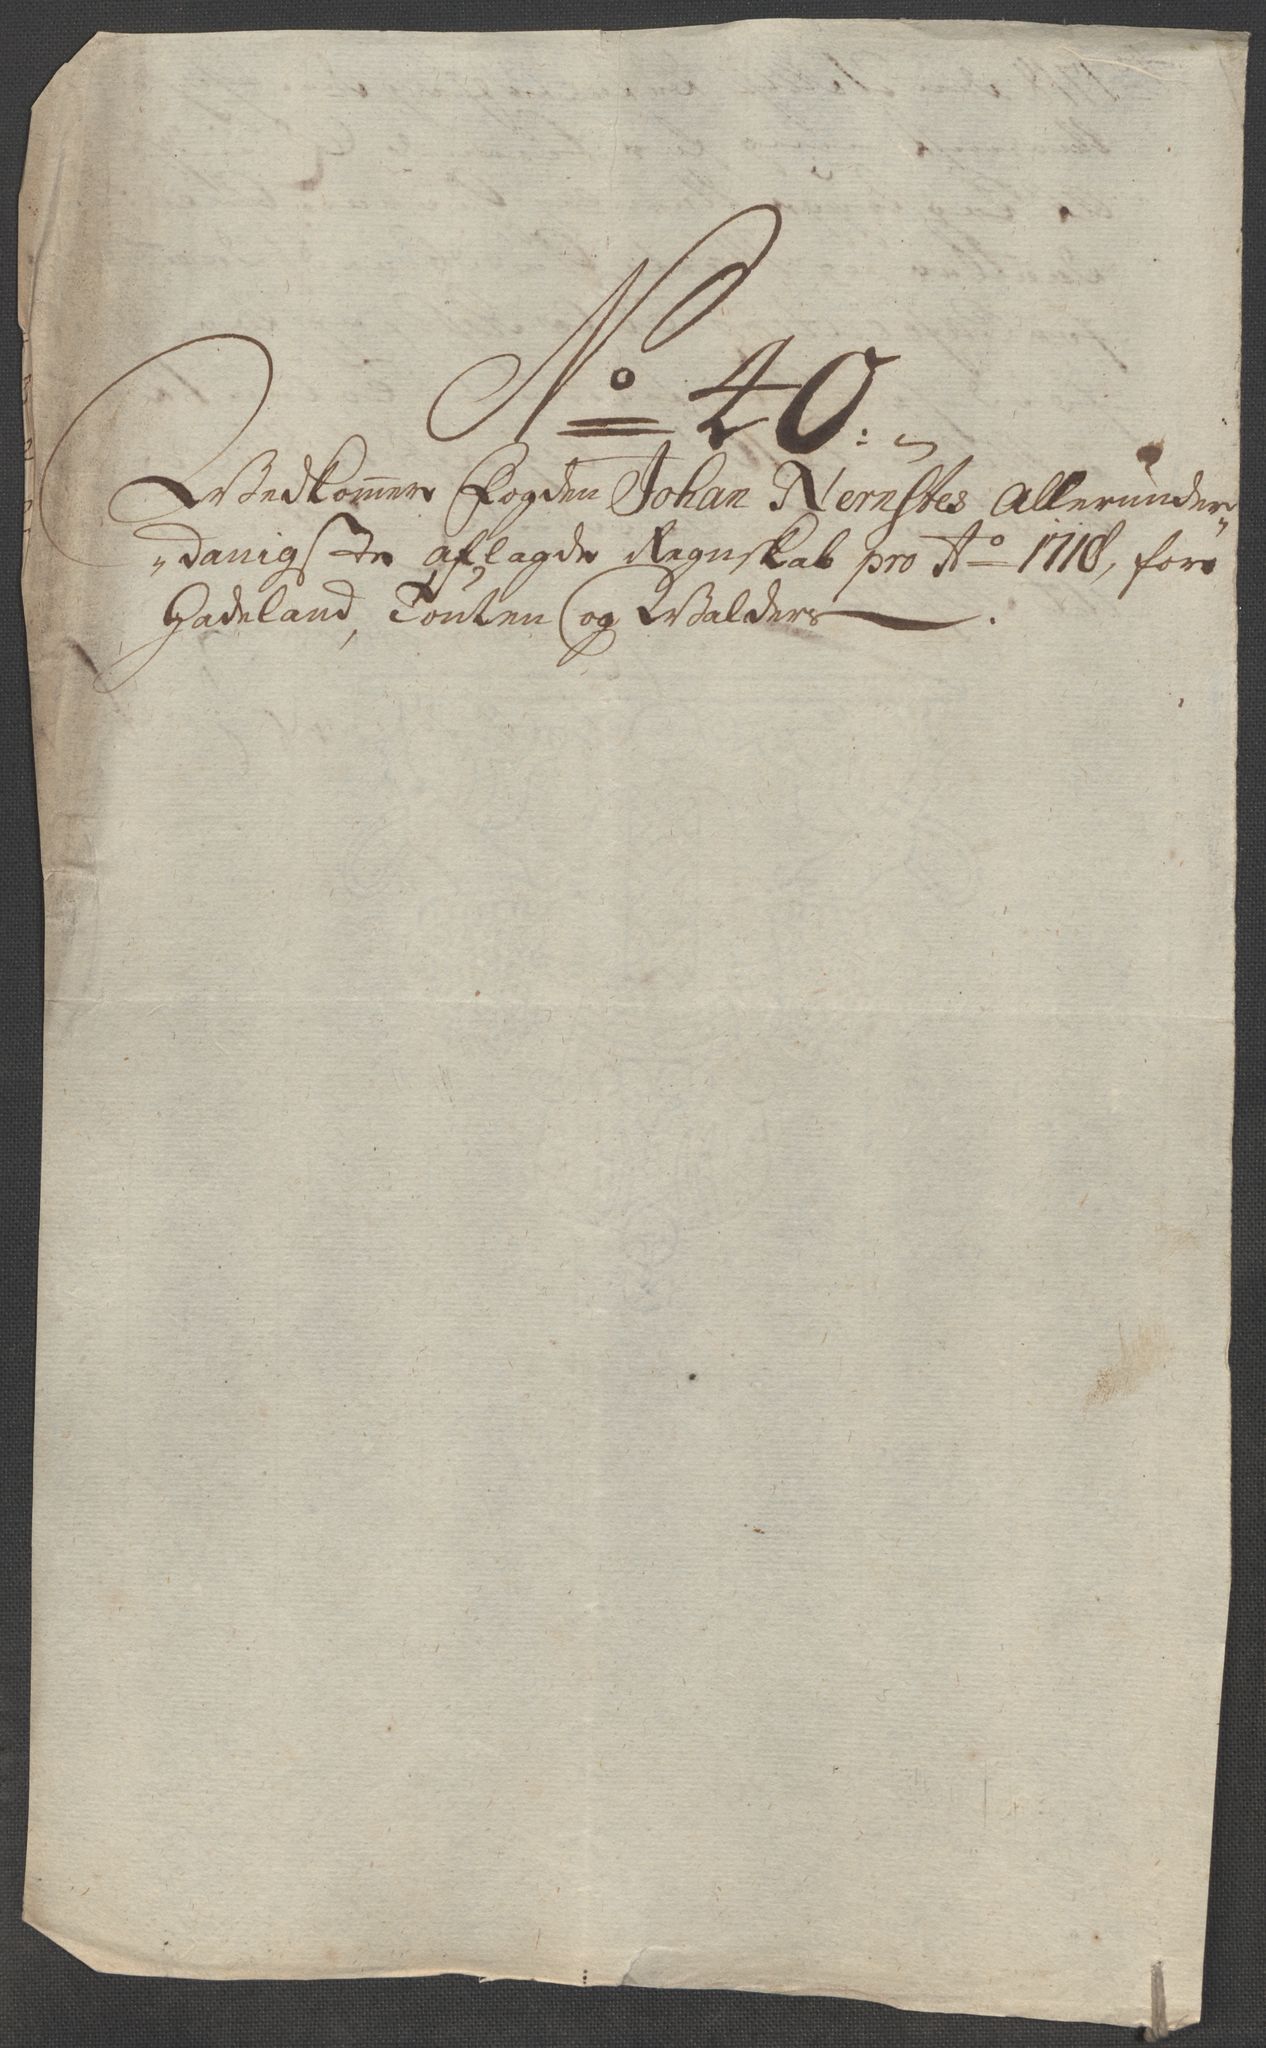 No 40.
Vedkommer Fogden Johan Nernstes Allerunder
danigste aflagde Regnskab pro Ao 1718, for
Hadeland, Touten og Walders.